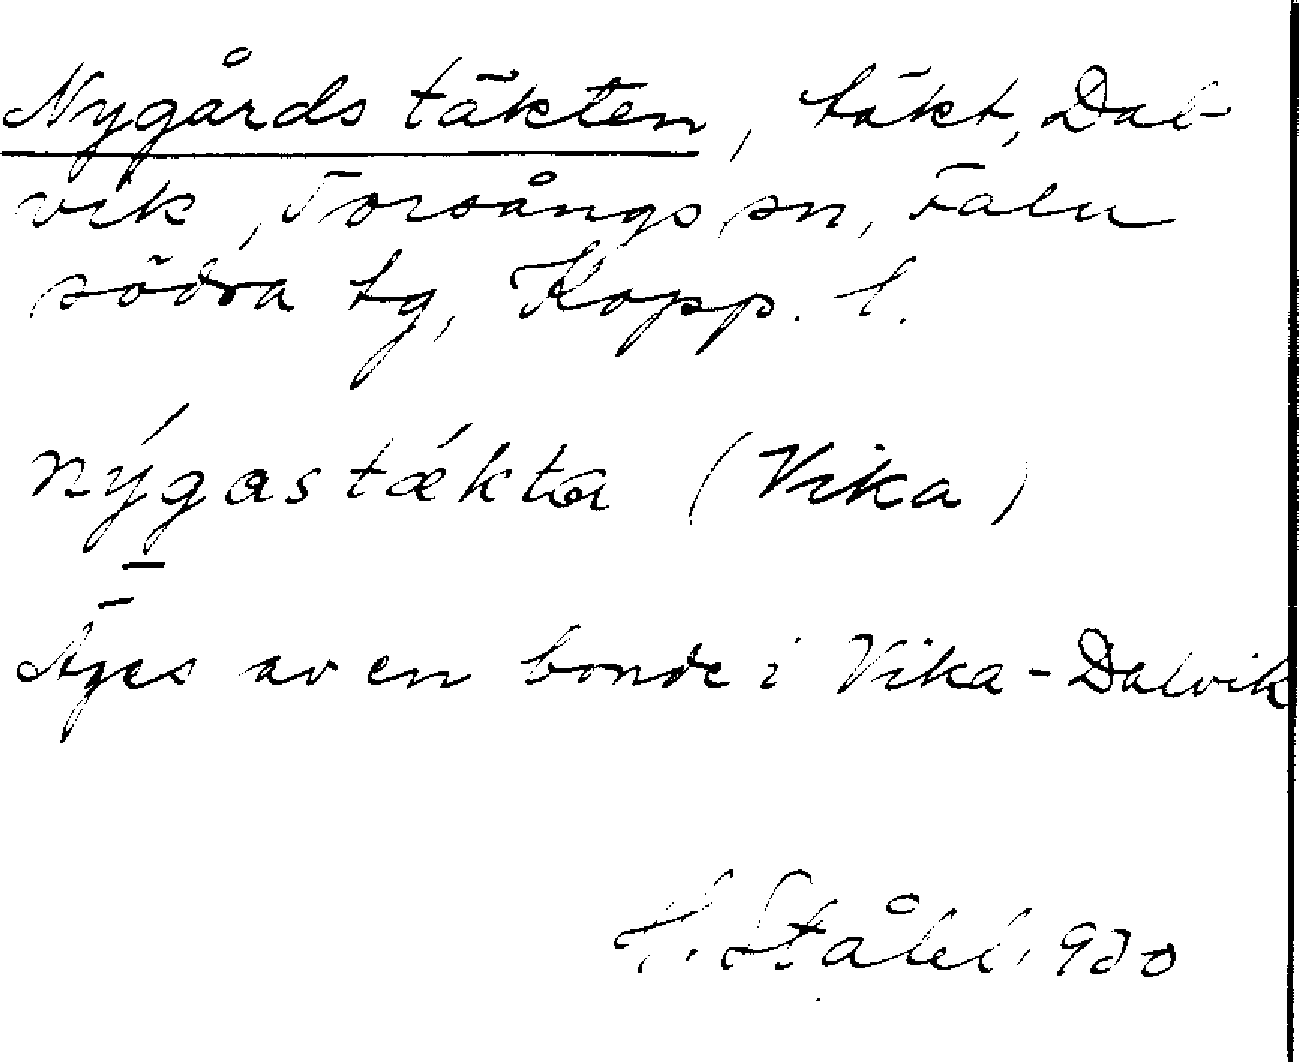 Nygårdstäkten, täkt, Dal-
vik, Torsångs sn, Falu
södra tg, Kopp. l.
nýgastǽkta (Vika)
Äges av en bonde i Vika-Dalvik
H. Ståhl 1930